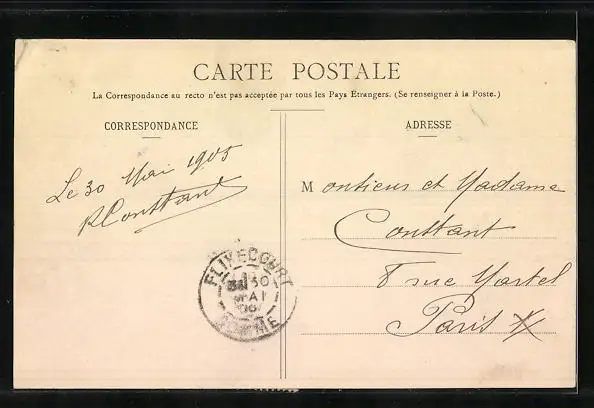 CARTE POSTALE
La Correspondance au recto n'est pas acceptée par tous les Pays Etrangers. (Se renseigner à la Poste.)
CORRESPONDANCE
Le 30 Mai 1905
R Constant
FLIXECOURT
30
MAI
SOMME
ADRESSE
Monsieur et Madame
Constant
8 rue Martel
Paris